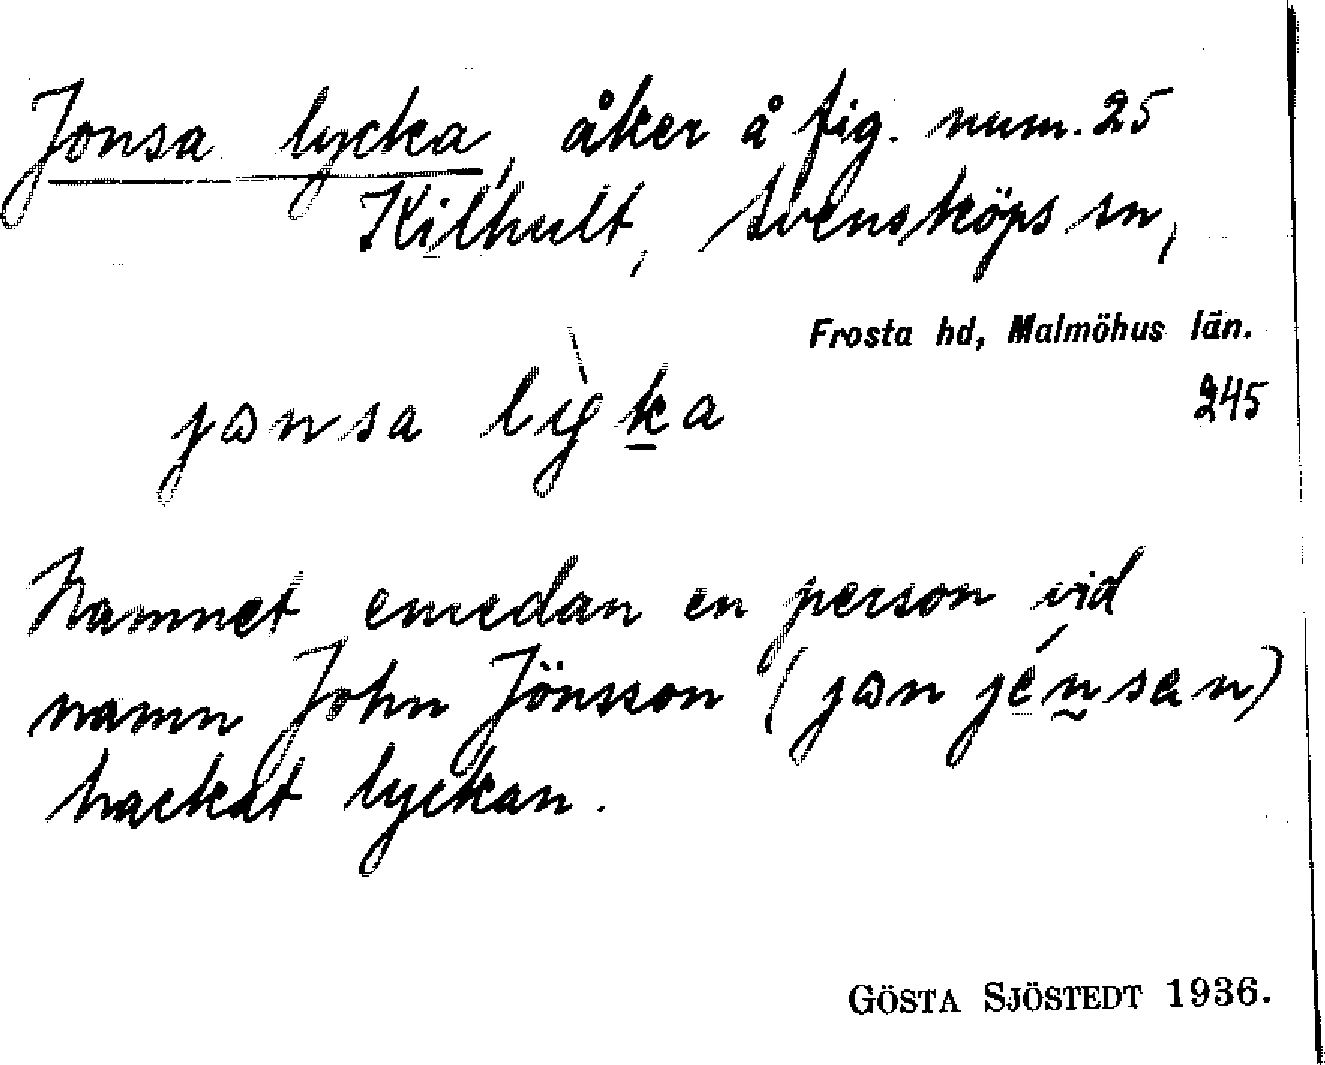 Jonsa lycka, åker å fig. num. 25
Kilhult, Svensköps sn,
Frosta hd, Malmöhus län.
245
jɷnsa lỳka
Namnet emedan en person vid
namn John Jönsson (jɷn jénsen)
hackat lyckan.
GÖSTA SJÖSTEDT 1936.